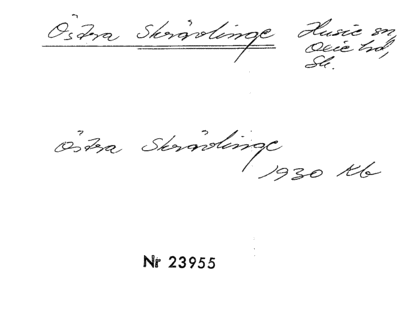 Östra Skrävlinge
Husie sn,
Oxie hd,
Sk.
Östra Skrävlinge
1930 Kb
Nr 23955